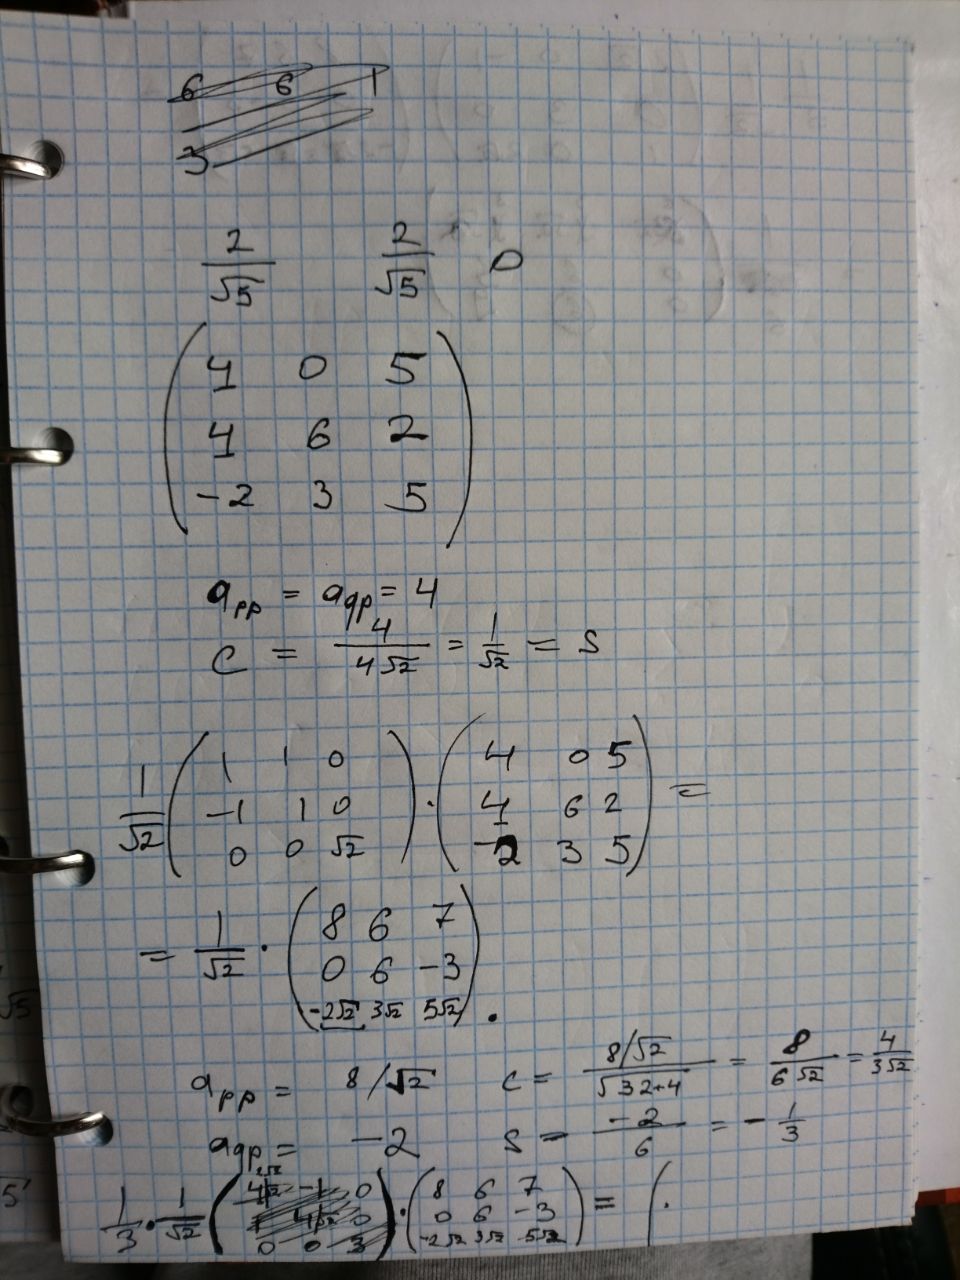 6 6 1
3
2/√5 2/√5 0
4 0 5
4 6 2
-2 3 5
a_pp = a_qp = 4
c = 4/(4√2) = 1/√2 = s
1/√2 (1 1 0; -1 1 0; 0 0 √2) · (4 0 5; 4 6 2; -2 3 5) =
= 1/√2 · (8 6 7; 0 6 -3; -2√2 3√2 5√2) .
a_pp = 8/√2 c = (8/√2)/√(32+4) = 8/(6√2) = 4/(3√2)
a_qp = -2 s = -2/6 = -1/3
1/3 · 1/√2 ( 0; 0; 0 0 3) · (8 6 7; 0 6 -3; -2√2 3√2 -5√2) = ( ·